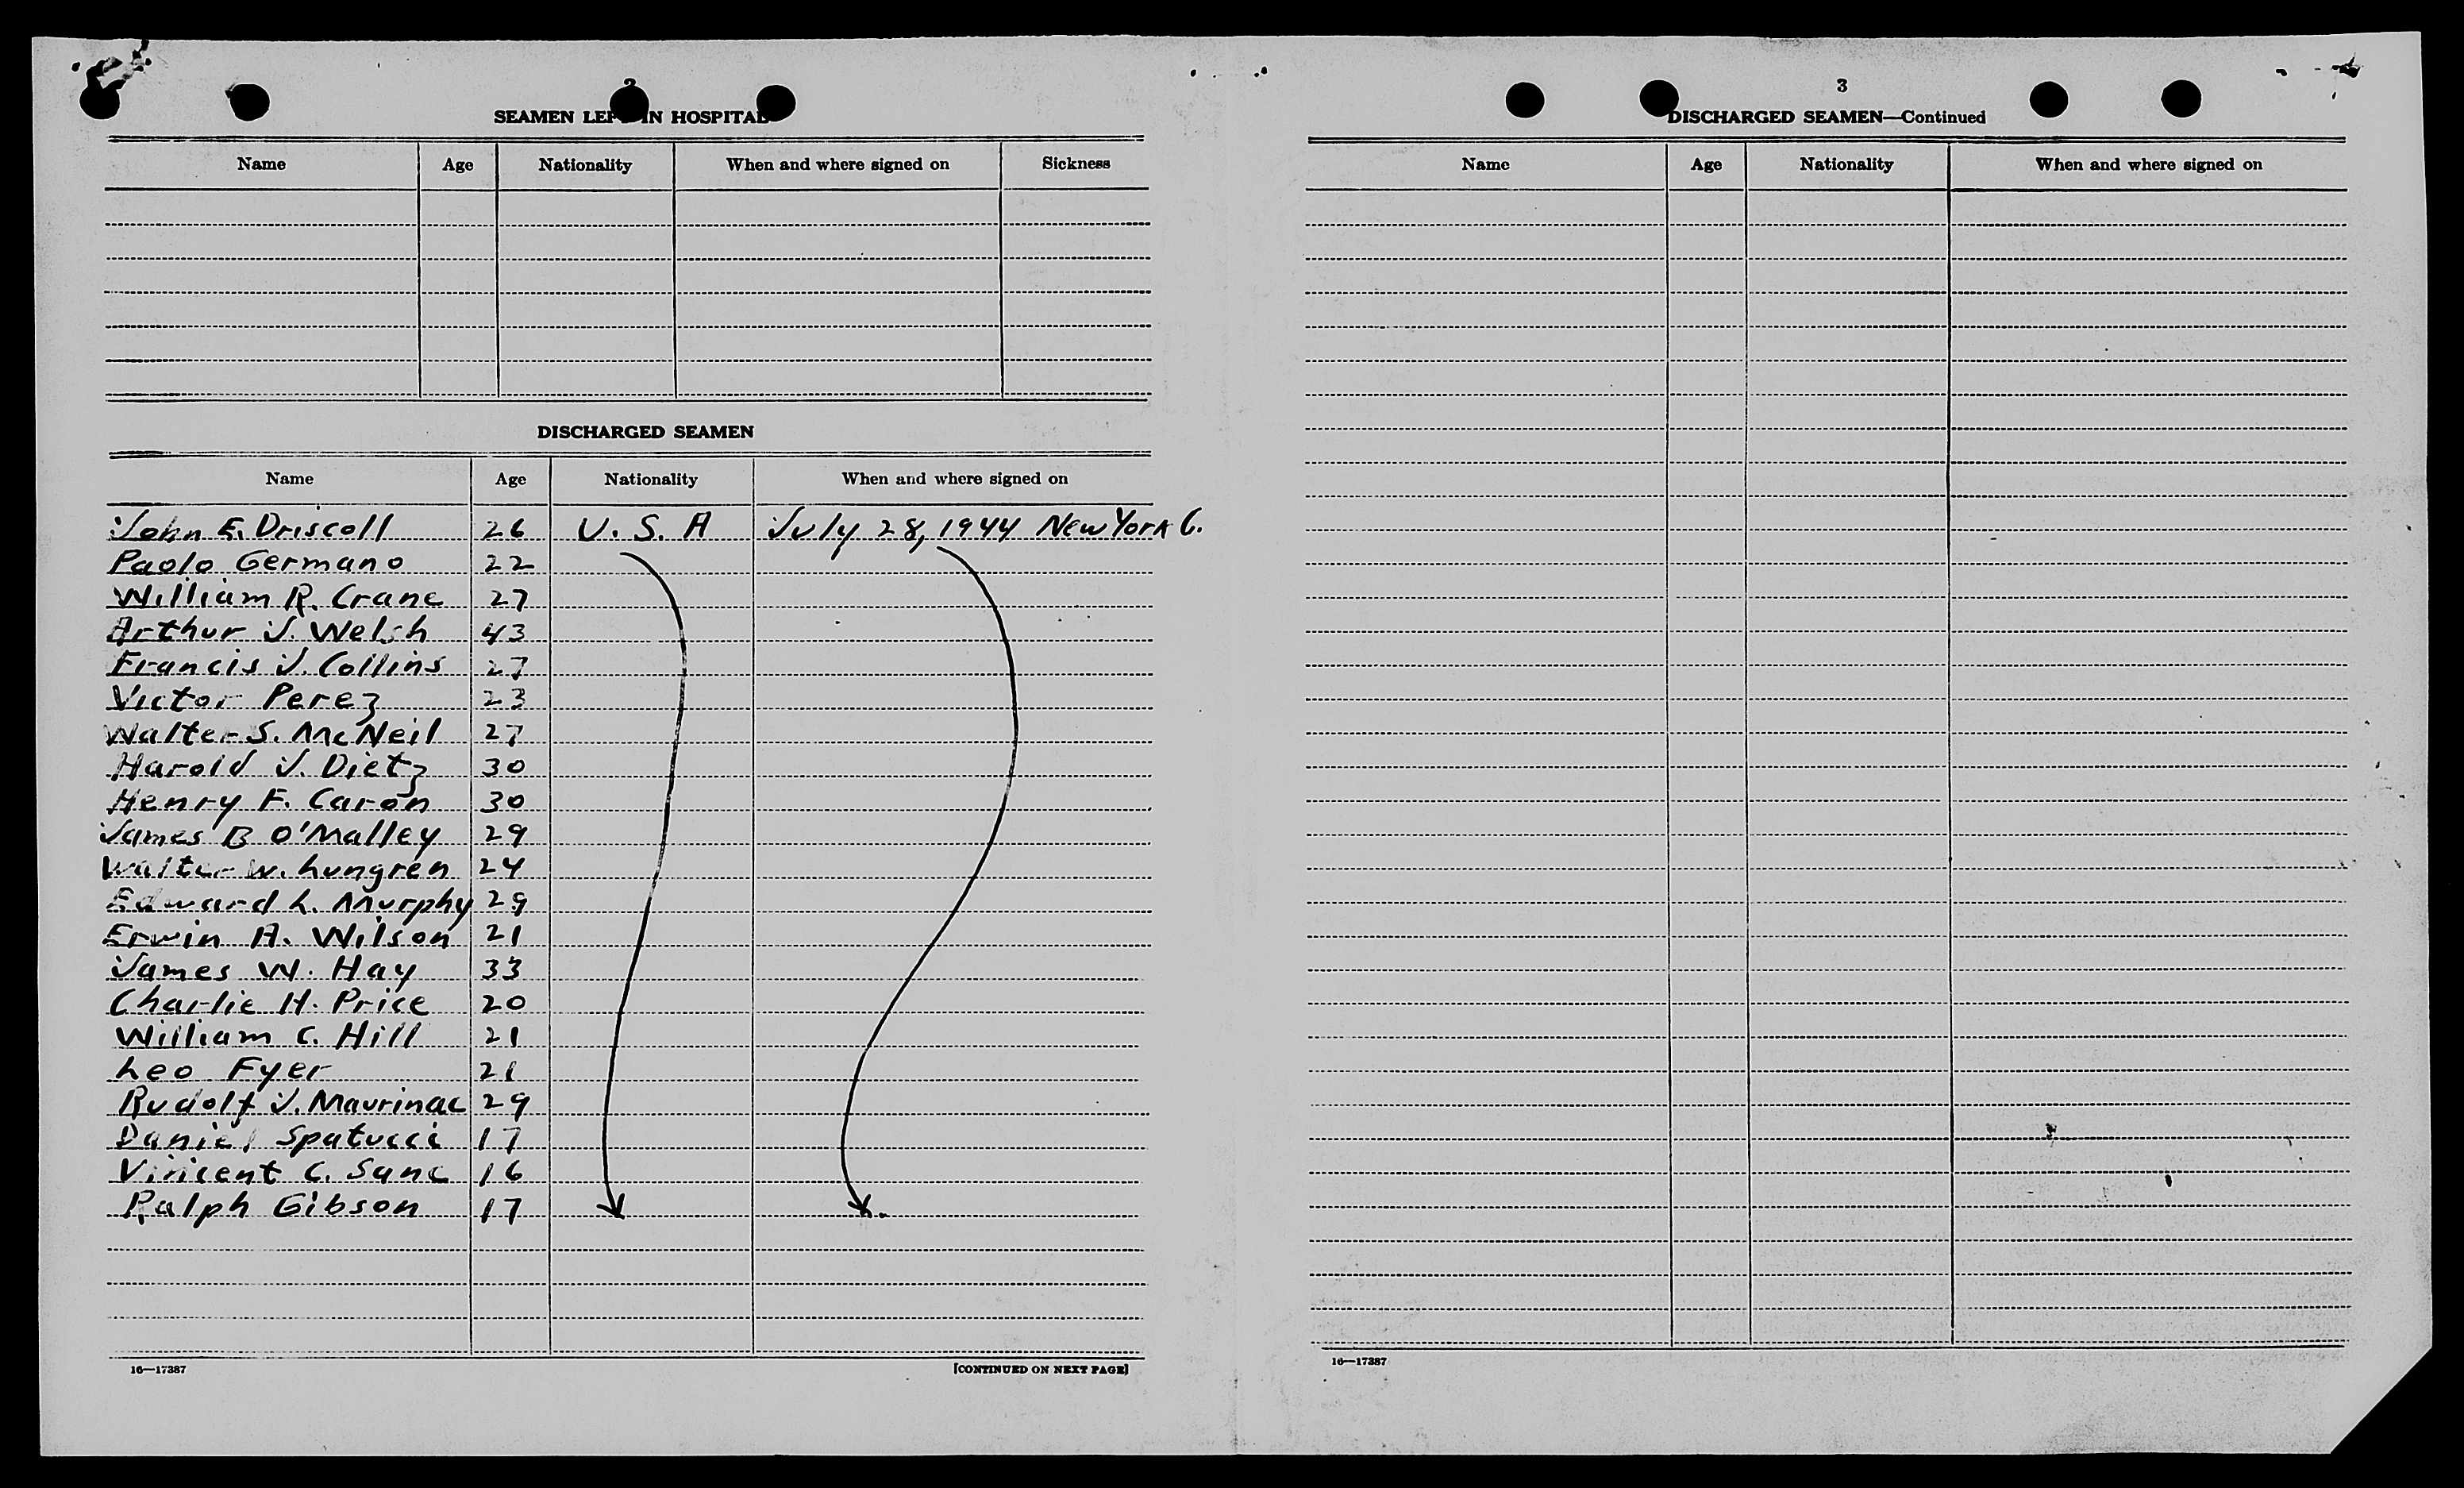 2
SEAMEN LEFT IN HOSPITAL
Name Age Nationality When and where signed on Sickness
DISCHARGED SEAMEN
Name Age Nationality When and where signed on
John E. Driscoll 26 U.S.A July 28, 1944 New York C.
Paolo Germano 22
William R. Crane 27
Arthur J. Welsh 43
Francis J. Collins 27
Victor Perez 23
Walter S. McNeil 27
Harold J. Dietz 30
Henry F. Caron 30
James B O'Malley 29
Walter W. Lungren 24
Edward L. Murphy 29
Erwin A. Wilson 21
James W. Hay 33
Charlie H. Price 20
William C. Hill 21
Leo Fyer 21
Rudolf J. Maurinac 29
Daniel Spatucci 17
Vincent C. Sanc 16
Ralph Gibson 17
16—17387 [CONTINUED ON NEXT PAGE]
3
DISCHARGED SEAMEN—Continued
Name Age Nationality When and where signed on
16—17387